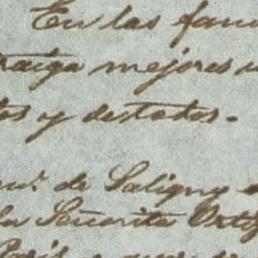 En las fam
raiga mejores
tos y destados.
de Saligny
la Señorita Ortiz
Paris